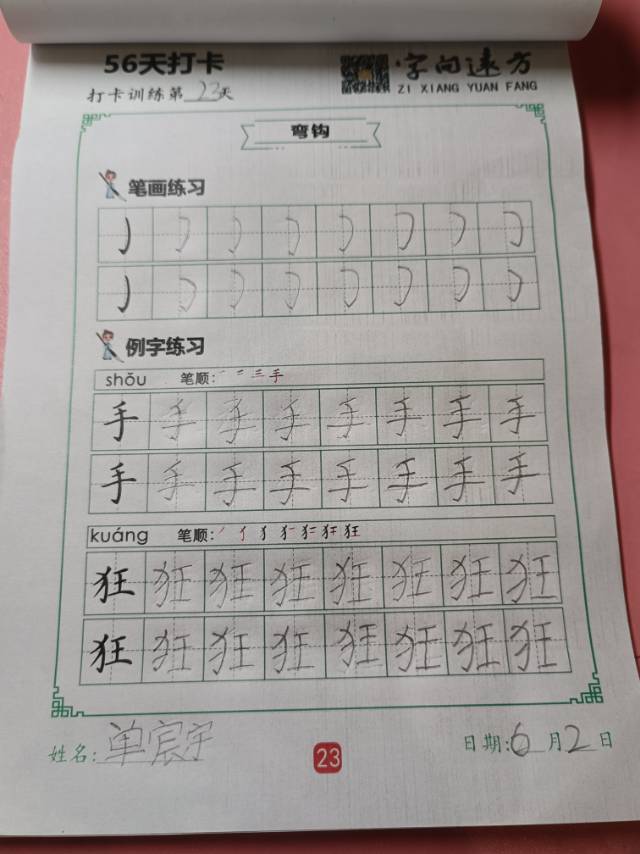 56天打卡
字向远方
打卡训练第23天
ZI XIANG YUAN FANG
弯钩
笔画练习
例字练习
shǒu 笔顺: 一 二 三 手
手 手 手 手 手 手 手 手
手 手 手 手 手 手 手 手
kuáng 笔顺:
狂 狂 狂 狂 狂 狂 狂 狂
狂 狂 狂 狂 狂 狂 狂 狂
姓名: 单宸宇
23
日期: 6月2日